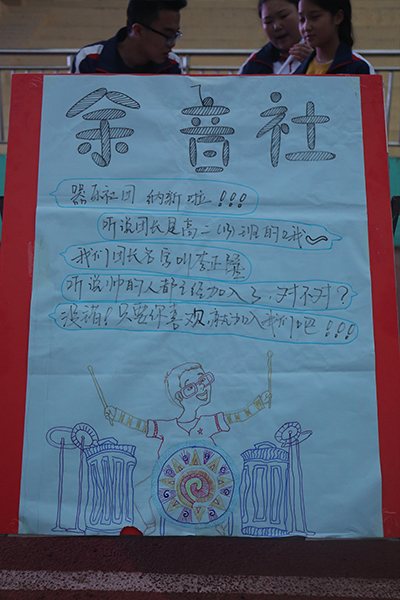 余音社
器乐社团 纳新啦!!!
听说团长是高二(13)班的哦~
我们团长名字叫李正
听说帅的人都已经加入了,对不对?
没错!只要你喜欢就加入我们吧!!!